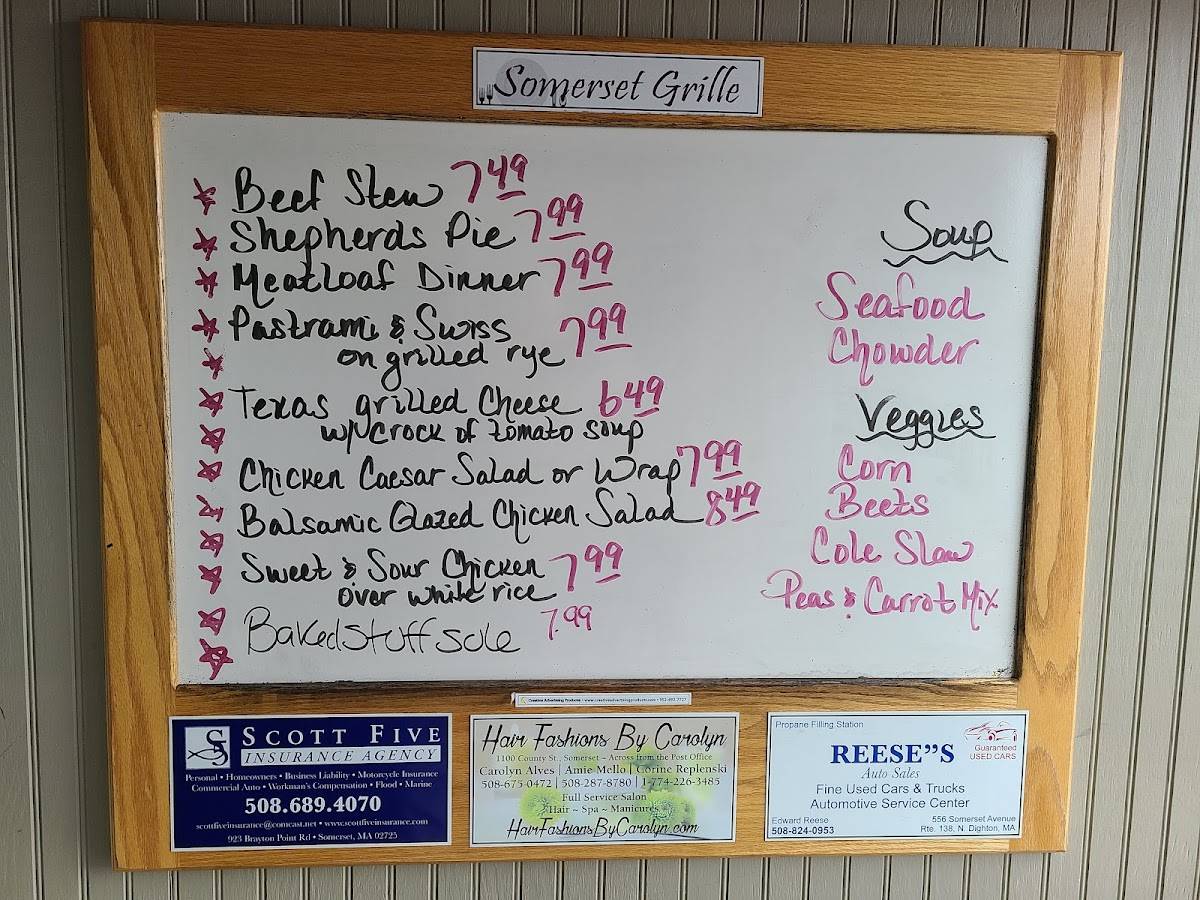 Somerset Grille
Beef Stew 7.49
Shepherds Pie 7.99
Meatloaf Dinner 7.99
Pastrami & Swiss 7.99
on grilled rye
Texas grilled Cheese 6.49
w/ Crock of tomato soup
Chicken Caesar Salad or Wrap 7.99
Balsamic Glazed Chicken Salad 8.49
Sweet & Sour Chicken 7.99
over white rice
Baked stuff sole 7.99
Soup
Seafood
Chowder
Veggies
Corn
Beets
Cole Slaw
Peas & Carrot Mix
Creative Advertising Products
SCOTT FIVE
INSURANCE AGENCY
Personal • Homeowners • Business Liability • Motorcycle Insurance
Commercial Auto • Workman's Compensation • Flood • Marine
508.689.4070
scottfiveinsurance@comcast.net • www.scottfiveinsurance.com
923 Brayton Point Rd • Somerset, MA 02725
Hair Fashions By Carolyn
1100 County St., Somerset ~ Across from the Post Office
Carolyn Alves | Amie Mello | Corine Replenski
508-675-0472 | 508-287-8780 | 1-774-226-3485
Full Service Salon
Hair ~ Spa ~ Manicures
HairFashionsByCarolyn.com
Propane Filling Station
REESE"S
Auto Sales
Guaranteed
USED CARS
Fine Used Cars & Trucks
Automotive Service Center
Edward Reese
508-824-0953
556 Somerset Avenue
Rte. 138, N. Dighton, MA